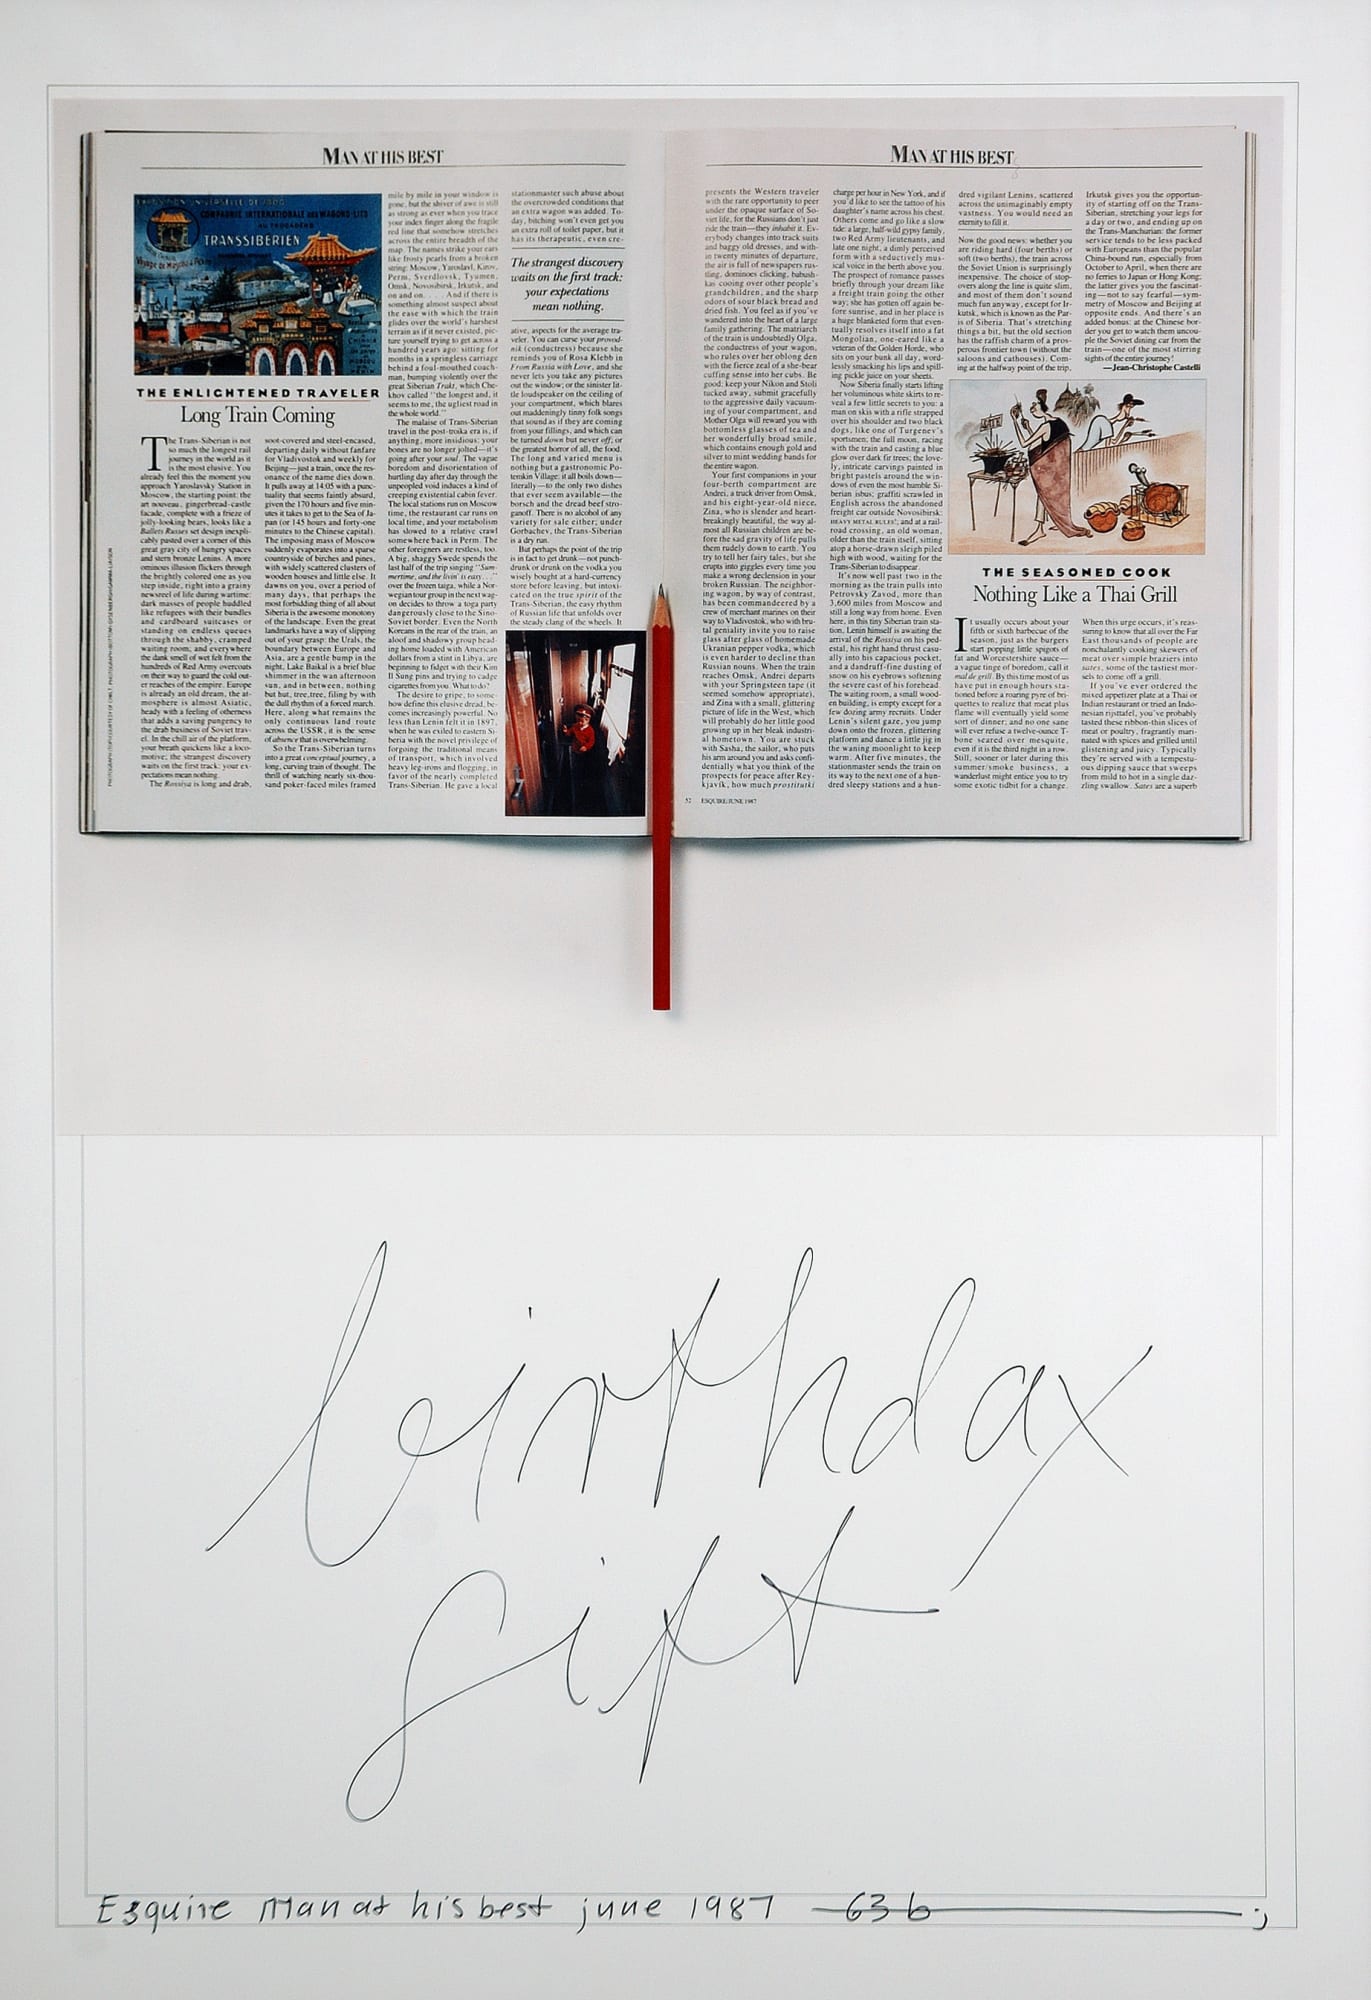 MAN AT HIS BEST
EXPOSITION UNIVERSELLE DE 1900
COMPAGNIE INTERNATIONALE DES WAGONS-LITS
AU TROCADERO
TRANSSIBERIEN
THE ENLIGHTENED TRAVELER
Long Train Coming
The Trans-Siberian is not
so much the longest rail
journey in the world as it
is the most elusive. You
already feel this the moment you
approach Yaroslavsky Station in
Moscow, the starting point: the
art nouveau, gingerbread-castle
facade, complete with a frieze of
jolly-looking bears, looks like a
Ballets Russes set design inexpli-
cably pasted over a corner of this
great gray city of hungry spaces
and stern bronze Lenins. A more
ominous illusion flickers through
the brightly colored one as you
step inside, right into a grainy
newsreel of life during wartime:
dark masses of people huddled
like refugees with their bundles
and cardboard suitcases or
standing on endless queues
through the shabby, cramped
waiting room; and everywhere
the dank smell of wet felt from the
hundreds of Red Army overcoats
on their way to guard the cold out-
er reaches of the empire. Europe
is already an old dream, the at-
mosphere is almost Asiatic,
heady with a feeling of otherness
that adds a saving pungency to
the drab business of Soviet trav-
el. In the chill air of the platform,
your breath quickens like a loco-
motive; the strangest discovery
waits on the first track: your ex-
pectations mean nothing.
The Rossiya is long and drab,
soot-covered and steel-encased,
departing daily without fanfare
for Vladivostok and weekly for
Beijing—just a train, once the res-
onance of the name dies down.
It pulls away at 14:05 with a punc-
tuality that seems faintly absurd,
given the 170 hours and five min-
utes it takes to get to the Sea of Ja-
pan (or 145 hours and forty-one
minutes to the Chinese capital).
The imposing mass of Moscow
suddenly evaporates into a sparse
countryside of birches and pines,
with widely scattered clusters of
wooden houses and little else. It
dawns on you, over a period of
many days, that perhaps the
most forbidding thing of all about
Siberia is the awesome monotony
of the landscape. Even the great
landmarks have a way of slipping
out of your grasp: the Urals, the
boundary between Europe and
Asia, are a gentle bump in the
night, Lake Baikal is a brief blue
shimmer in the wan afternoon
sun, and in between, nothing
but but, tree, tree, filing by with
the dull rhythm of a forced march.
Here, along what remains the
only continuous land route
across the USSR, it is the sense
of absence that is overwhelming.
So the Trans-Siberian turns
into a great conceptual journey, a
long, curving train of thought. The
thrill of watching nearly six-thou-
sand poker-faced miles framed
mile by mile in your window is
gone, but the shiver of awe is still
as strong as ever when you trace
your index finger along the fragile
red line that somehow stretches
across the entire breadth of the
map. The names strike your ears
like frosty pearls from a broken
string: Moscow, Yaroslavl, Kirov,
Perm, Sverdlovsk, Tyumen,
Omsk, Novosibirsk, Irkutsk, and
on and on. . . . And if there is
something almost suspect about
the ease with which the train
glides over the world's harshest
terrain as if it never existed, pic-
ture yourself trying to get across a
hundred years ago: sitting for
months in a springless carriage
behind a foul-mouthed coach-
man, bumping violently over the
great Siberian Trakt, which Che-
khov called "the longest and, it
seems to me, the ugliest road in
the whole world."
The malaise of Trans-Siberian
travel in the post-troika era is, if
anything, more insidious: your
bones are no longer jolted—it's
going after your soul. The vague
boredom and disorientation of
hurtling day after day through the
unpeopled void induces a kind of
creeping existential cabin fever.
The local stations run on Moscow
time, the restaurant car runs on
local time, and your metabolism
has slowed to a relative crawl
somewhere back in Perm. The
other foreigners are restless, too.
A big, shaggy Swede spends the
last half of the trip singing "Sum-
mertime, and the livin' is easy. . ."
over the frozen taiga, while a Nor-
wegian tour group in the next wag-
on decides to throw a toga party
dangerously close to the Sino-
Soviet border. Even the North
Koreans in the rear of the train, an
aloof and shadowy group head-
ing home loaded with American
dollars from a stint in Libya, are
beginning to fidget with their Kim
Il Sung pins and trying to cadge
cigarettes from you. What to do?
The desire to gripe, to some-
how define this elusive dread, be-
comes increasingly powerful. No
less than Lenin felt it in 1897,
when he was exiled to eastern Si-
beria with the novel privilege of
forgoing the traditional means
of transport, which involved
heavy leg-irons and flogging, in
favor of the nearly completed
Trans-Siberian. He gave a local
stationmaster such abuse about
the overcrowded conditions that
an extra wagon was added. To-
day, bitching won't even get you
an extra roll of toilet paper, but it
has its therapeutic, even cre-
The strangest discovery
waits on the first track:
your expectations
mean nothing.
ative, aspects for the average tra-
veler. You can curse your provod-
nik (conductress) because she
reminds you of Rosa Klebb in
From Russia with Love, and she
never lets you take any pictures
out the window; or the sinister lit-
tle loudspeaker on the ceiling of
your compartment, which blares
out maddeningly tinny folk songs
that sound as if they are coming
from your fillings, and which can
be turned down but never off; or
the greatest horror of all, the food.
The long and varied menu is
nothing but a gastronomic Po-
temkin Village: it all boils down—
literally—to the only two dishes
that ever seem available—the
borsch and the dread beef stro-
ganoff. There is no alcohol of any
variety for sale either; under
Gorbachev, the Trans-Siberian
is a dry run.
But perhaps the point of the trip
is in fact to get drunk—not punch-
drunk or drunk on the vodka you
wisely bought at a hard-currency
store before leaving, but intoxi-
cated on the true spirit of the
Trans-Siberian, the easy rhythm
of Russian life that unfolds over
the steady clang of the wheels. It
MAN AT HIS BEST
presents the Western traveler
with the rare opportunity to peer
under the opaque surface of So-
viet life, for the Russians don't just
ride the train—they inhabit it. Ev-
erybody changes into track suits
and baggy old dresses, and with-
in twenty minutes of departure,
the air is full of newspapers rus-
tling, dominoes clicking, babush-
kas cooing over other people's
grandchildren, and the sharp
odors of sour black bread and
dried fish. You feel as if you've
wandered into the heart of a large
family gathering. The matriarch
of the train is undoubtedly Olga,
the conductress of your wagon,
who rules over her oblong den
with the fierce zeal of a she-bear
cuffing sense into her cubs. Be
good: keep your Nikon and Stoli
tucked away, submit gracefully
to the aggressive daily vacuum-
ing of your compartment, and
Mother Olga will reward you with
bottomless glasses of tea and
her wonderfully broad smile,
which contains enough gold and
silver to mint wedding bands for
the entire wagon.
Your first companions in your
four-berth compartment are
Andrei, a truck driver from Omsk,
and his eight-year-old niece,
Zina, who is slender and heart-
breakingly beautiful, the way al-
most all Russian children are be-
fore the sad gravity of life pulls
them rudely down to earth. You
try to tell her fairy tales, but she
erupts into giggles every time you
make a wrong declension in your
broken Russian. The neighbor-
ing wagon, by way of contrast,
has been commandeered by a
crew of merchant marines on their
way to Vladivostok, who with bru-
tal geniality invite you to raise
glass after glass of homemade
Ukranian pepper vodka, which
is even harder to decline than
Russian nouns. When the train
reaches Omsk, Andrei departs
with your Springsteen tape (it
seemed somehow appropriate),
and Zina with a small, glittering
picture of life in the West, which
will probably do her little good
growing up in her bleak industri-
al hometown. You are stuck
with Sasha, the sailor, who puts
his arm around you and asks confi-
dentially what you think of the
prospects for peace after Rey-
kjavik, how much prostitutki
charge per hour in New York, and if
you'd like to see the tattoo of his
daughter's name across his chest.
Others come and go like a slow
tide: a large, half-wild gypsy family,
two Red Army lieutenants, and
late one night, a dimly perceived
form with a seductively mus-
ical voice in the berth above you.
The prospect of romance passes
briefly through your dream like
a freight train going the other
way; she has gotten off again be-
fore sunrise, and in her place is
a huge blanketed form that even-
tually resolves itself into a fat
Mongolian, one-eared like a
veteran of the Golden Horde, who
sits on your bunk all day, word-
lessly smacking his lips and spill-
ing pickle juice on your sheets.
Now Siberia finally starts lifting
her voluminous white skirts to re-
veal a few little secrets to you: a
man on skis with a rifle strapped
over his shoulder and two black
dogs, like one of Turgenev's
sportsmen; the full moon, racing
with the train and casting a blue
glow over dark fir trees; the love-
ly, intricate carvings painted in
bright pastels around the win-
dows of even the most humble Si-
berian isbus; graffiti scrawled in
English across the abandoned
freight car outside Novosibirsk:
HEAVY METAL RULES!; and at a rail-
road crossing, an old woman,
older than the train itself, sitting
atop a horse-drawn sleigh piled
high with wood, waiting for the
Trans-Siberian to disappear.
It's now well past two in the
morning as the train pulls into
Petrovsky Zavod, more than
3,600 miles from Moscow and
still a long way from home. Even
here, in this tiny Siberian train sta-
tion, Lenin himself is awaiting the
arrival of the Rossiya on his ped-
estal, his right hand thrust casu-
ally into his capacious pocket,
and a dandruff-fine dusting of
snow on his eyebrows softening
the severe cast of his forehead.
The waiting room, a small wood-
en building, is empty except for a
few dozing army recruits. Under
Lenin's silent gaze, you jump
down onto the frozen, glittering
platform and dance a little jig in
the waning moonlight to keep
warm. After five minutes, the
stationmaster sends the train on
its way to the next one of a hun-
dred sleepy stations and a hun-
dred vigilant Lenins, scattered
across the unimaginably empty
vastness. You would need an
eternity to fill it.
Now the good news: whether you
are riding hard (four berths) or
soft (two berths), the train across
the Soviet Union is surprisingly
inexpensive. The choice of stop-
overs along the line is quite slim,
and most of them don't sound
much fun anyway, except for Ir-
kutsk, which is known as the Par-
is of Siberia. That's stretching
things a bit, but the old section
has the raffish charm of a pros-
perous frontier town (without the
saloons and cathouses). Com-
ing at the halfway point of the trip,
Irkutsk gives you the opportun-
ity of starting off on the Trans-
Siberian, stretching your legs for
a day or two, and ending up on
the Trans-Manchurian: the former
service tends to be less packed
with Europeans than the popular
China-bound run, especially from
October to April, when there are
no ferries to Japan or Hong Kong;
the latter gives you the fascinat-
ing—not to say fearful—sym-
metry of Moscow and Beijing at
opposite ends. And there's an
added bonus: at the Chinese bor-
der you get to watch them uncou-
ple the Soviet dining car from the
train—one of the most stirring
sights of the entire journey!
—Jean-Christophe Castelli
THE SEASONED COOK
Nothing Like a Thai Grill
It usually occurs about your
fifth or sixth barbecue of the
season, just as the burgers
start popping little spigots of
fat and Worcestershire sauce—
a vague tinge of boredom, call it
mal de grill. By this time most of us
have put in enough hours sta-
tioned before a roaring pyre of bri-
quettes to realize that meat plus
flame will eventually yield some
sort of dinner; and no one sane
will ever refuse a twelve-ounce T-
bone seared over mesquite,
even if it is the third night in a row.
Still, sooner or later during this
summer/smoke business, a
wanderlust might entice you to try
some exotic tidbit for a change.
When this urge occurs, it's reas-
suring to know that all over the Far
East thousands of people are
nonchalantly cooking skewers of
meat over simple braziers into
sates, some of the tastiest mor-
sels to come off a grill.
If you've ever ordered the
mixed appetizer plate at a Thai or
Indian restaurant or tried an Indo-
nesian rijsttafel, you've probably
tasted these ribbon-thin slices of
meat or poultry, fragrantly mari-
nated with spices and grilled until
glistening and juicy. Typically
they're served with a tempestu-
ous dipping sauce that sweeps
from mild to hot in a single daz-
zling swallow. Sates are a superb
52 ESQUIRE/JUNE 1987
birthday
gift
Esquire Man at his best june 1987 63 b